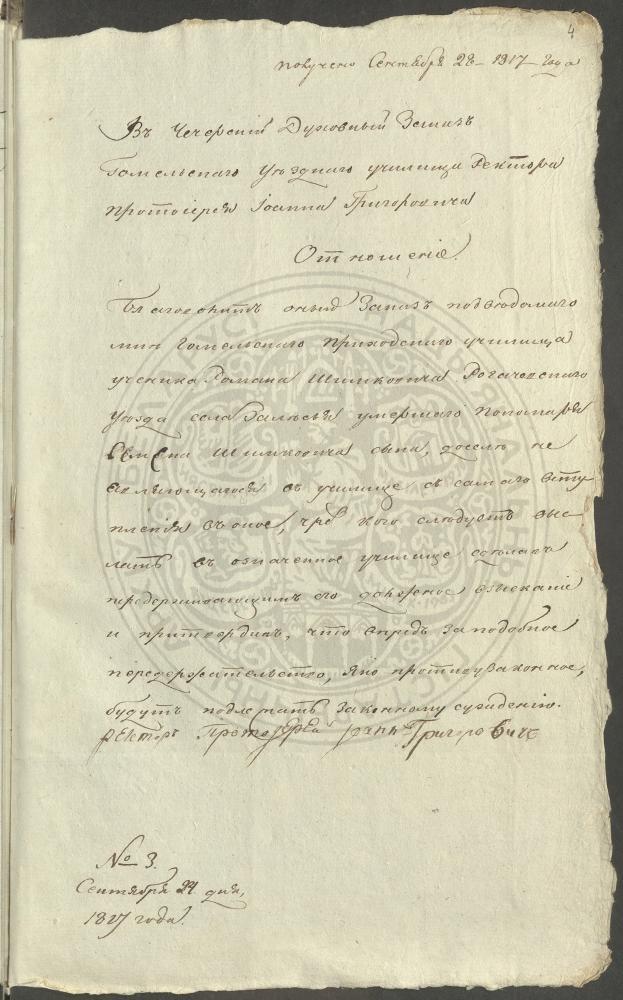 4
получено Сентября 28 - 1817 - года
Въ Чечерскій Духовный Заказъ
Гомельскаго уѣзднаго училища Ректора
Протоіерея Іоанна Григоровича
Отношеніе.
Благоволитъ оный Заказъ подвѣдомаго
мнѣ Гомельскаго приходскаго училища
ученика Романа Шимковича Рогачевскаго
уѣзда села Залесья умершаго пономаря
Семена Шимковича сына, доселѣ не
являющагося въ училище съ самаго всту
пленія въ оное, чрез кого слѣдуетъ выс
лать въ означенное училище сдѣлавъ
передерживающимъ его должное взысканіе
и притвердивъ, что впредь за подобное
передержательство, яко противузаконное,
будутъ подлежать законному сужденію.
Ректоръ Протоіерей Іоаннъ Григоровичъ
№ 3.
Сентября 24 дня,
1817 года.